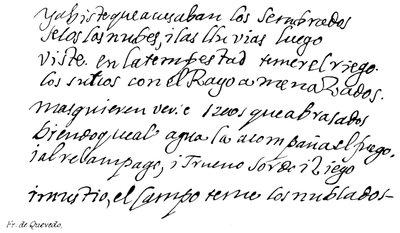 ya biste que acusaban los sembrados
secos los nubes, i las lluvias luego
viste. en la tempestad temer el riego.
los surcos con el Rayo amenazados.
mas quieren verse secos que abrasados
biendo que al agua la acompaña el fuego.
i al relampago, i Trueno sordo i ziego
i mustio, el campo teme los nublados-
Fr. de Quevedo.